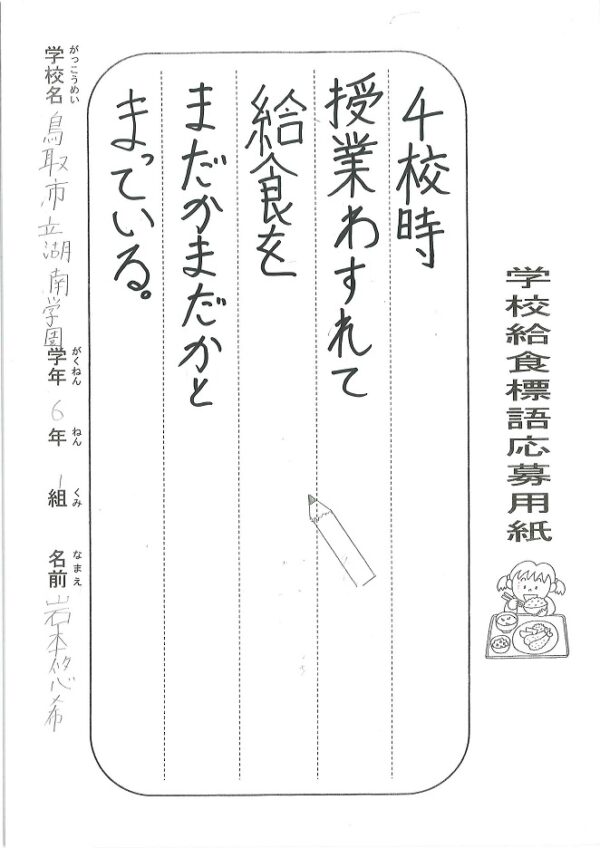 学校給食標語応募用紙
4校時
授業わすれて
給食を
まだかまだかと
まっている。
学校名 鳥取市立湖南学園 学年 6年 1組 名前 岩本悠希
がっこうめい がくねん ねん くみ なまえ